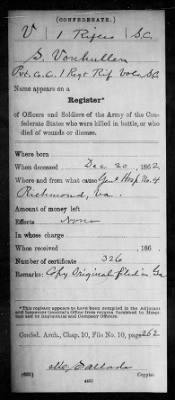 (CONFEDERATE.)
V | 1 Rifles | S.C.
S. Vonhullen
Pvt. Co. C. 1 Regt Rif Vols, S.C.
Name appears on a
Register*
of Officers and Soldiers of the Army of the Con-
federate States who were killed in battle, or who
died of wounds or disease.
Where born
When deceased Dec 20, 1862
Where and from what cause Genl Hosp No. 4
Richmond, Va.
Amount of money left
Effects None
In whose charge
When received 186 .
Number of certificate 326
Remarks: Copy Original filed in
*This register appears to have been compiled in the Adjutant
and Inspector General's Office from returns furnished by Hospi-
tal and by Regimental and Company Officers.
Confed. Arch., Chap. 10, File No. 10, page 262
Copyist.